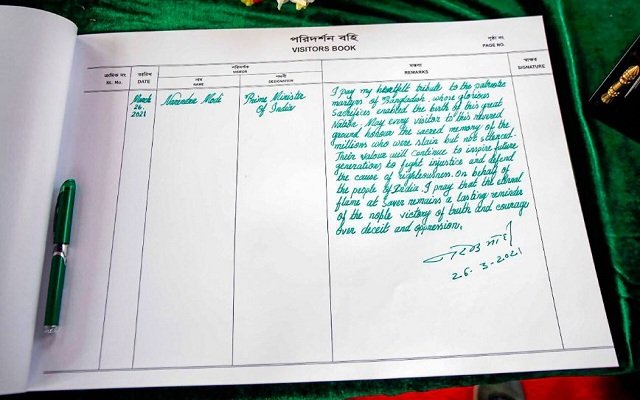 পরিদর্শন বহি
VISITORS BOOK
পৃষ্ঠা নং
PAGE NO.
ক্রমিক নং
SL. No.
তারিখ
DATE
পরিদর্শক
VISITOR
নাম
NAME
পদবী
DESIGNATION
মন্তব্য
REMARKS
স্বাক্ষর
SIGNATURE
March
26,
2021
Narendra Modi
Prime Minister
Of India
I pay my heartfelt tribute to the patriotic
martyrs of Bangladesh, whose glorious
Sacrifices enabled the birth of this great
Nation. May every visitor to this revered
ground honour the sacred memory of the
millions who were slain but not silenced.
Their valour will continue to inspire future
generations to fight injustice and defend
the cause of righteousness. On behalf of
the people of India, I pray that the eternal
flame at Savar remains a lasting reminder
of the noble victory of truth and courage
over deceit and oppression.
26-3-2021